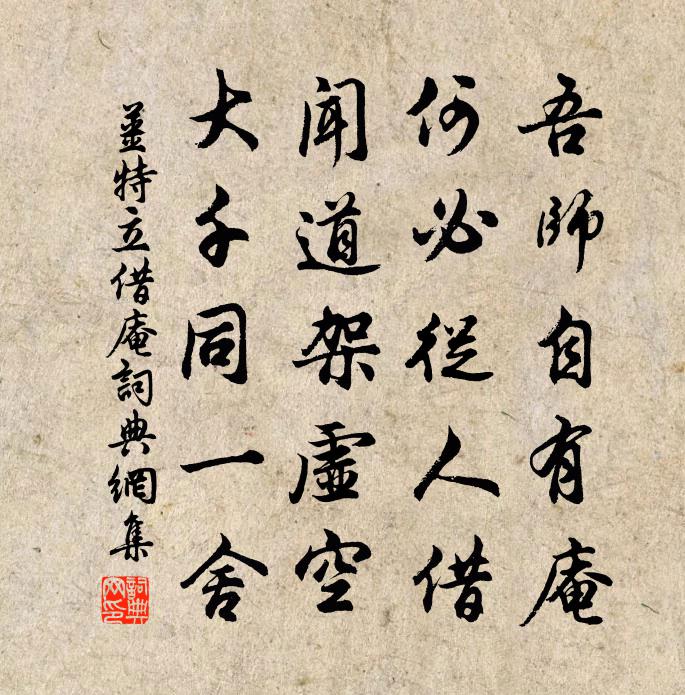 吾師自有庵
何必從人借
聞道架虛空
大千同一舍
姜特立借庵詞典網集
詞典網印